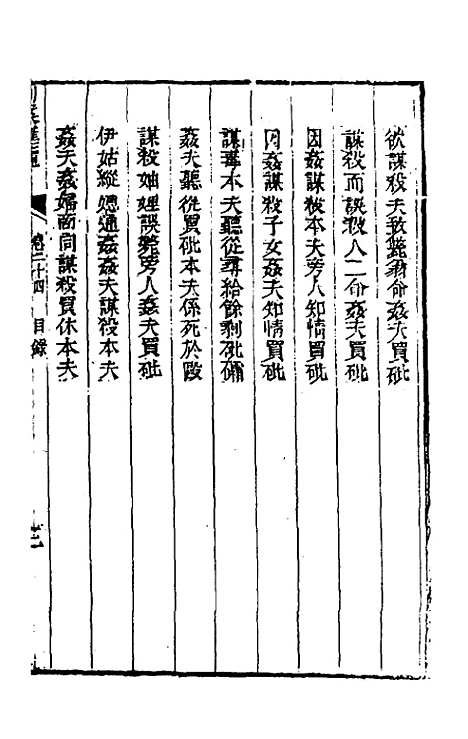 欲謀殺夫致斃翁命姦夫買砒
謀殺而誤殺人二命姦夫買砒
因姦謀殺本夫旁人知情買砒
因姦謀殺子女姦夫知情買砒
謀毒本夫聽從尋給餘剩砒礵
姦夫聽從買砒本夫係死於毆
謀殺妯娌誤斃旁人姦夫買砒
伊姑縱媳通姦姦夫謀殺本夫
姦夫姦婦商同謀殺買休本夫
卷二十四 目錄